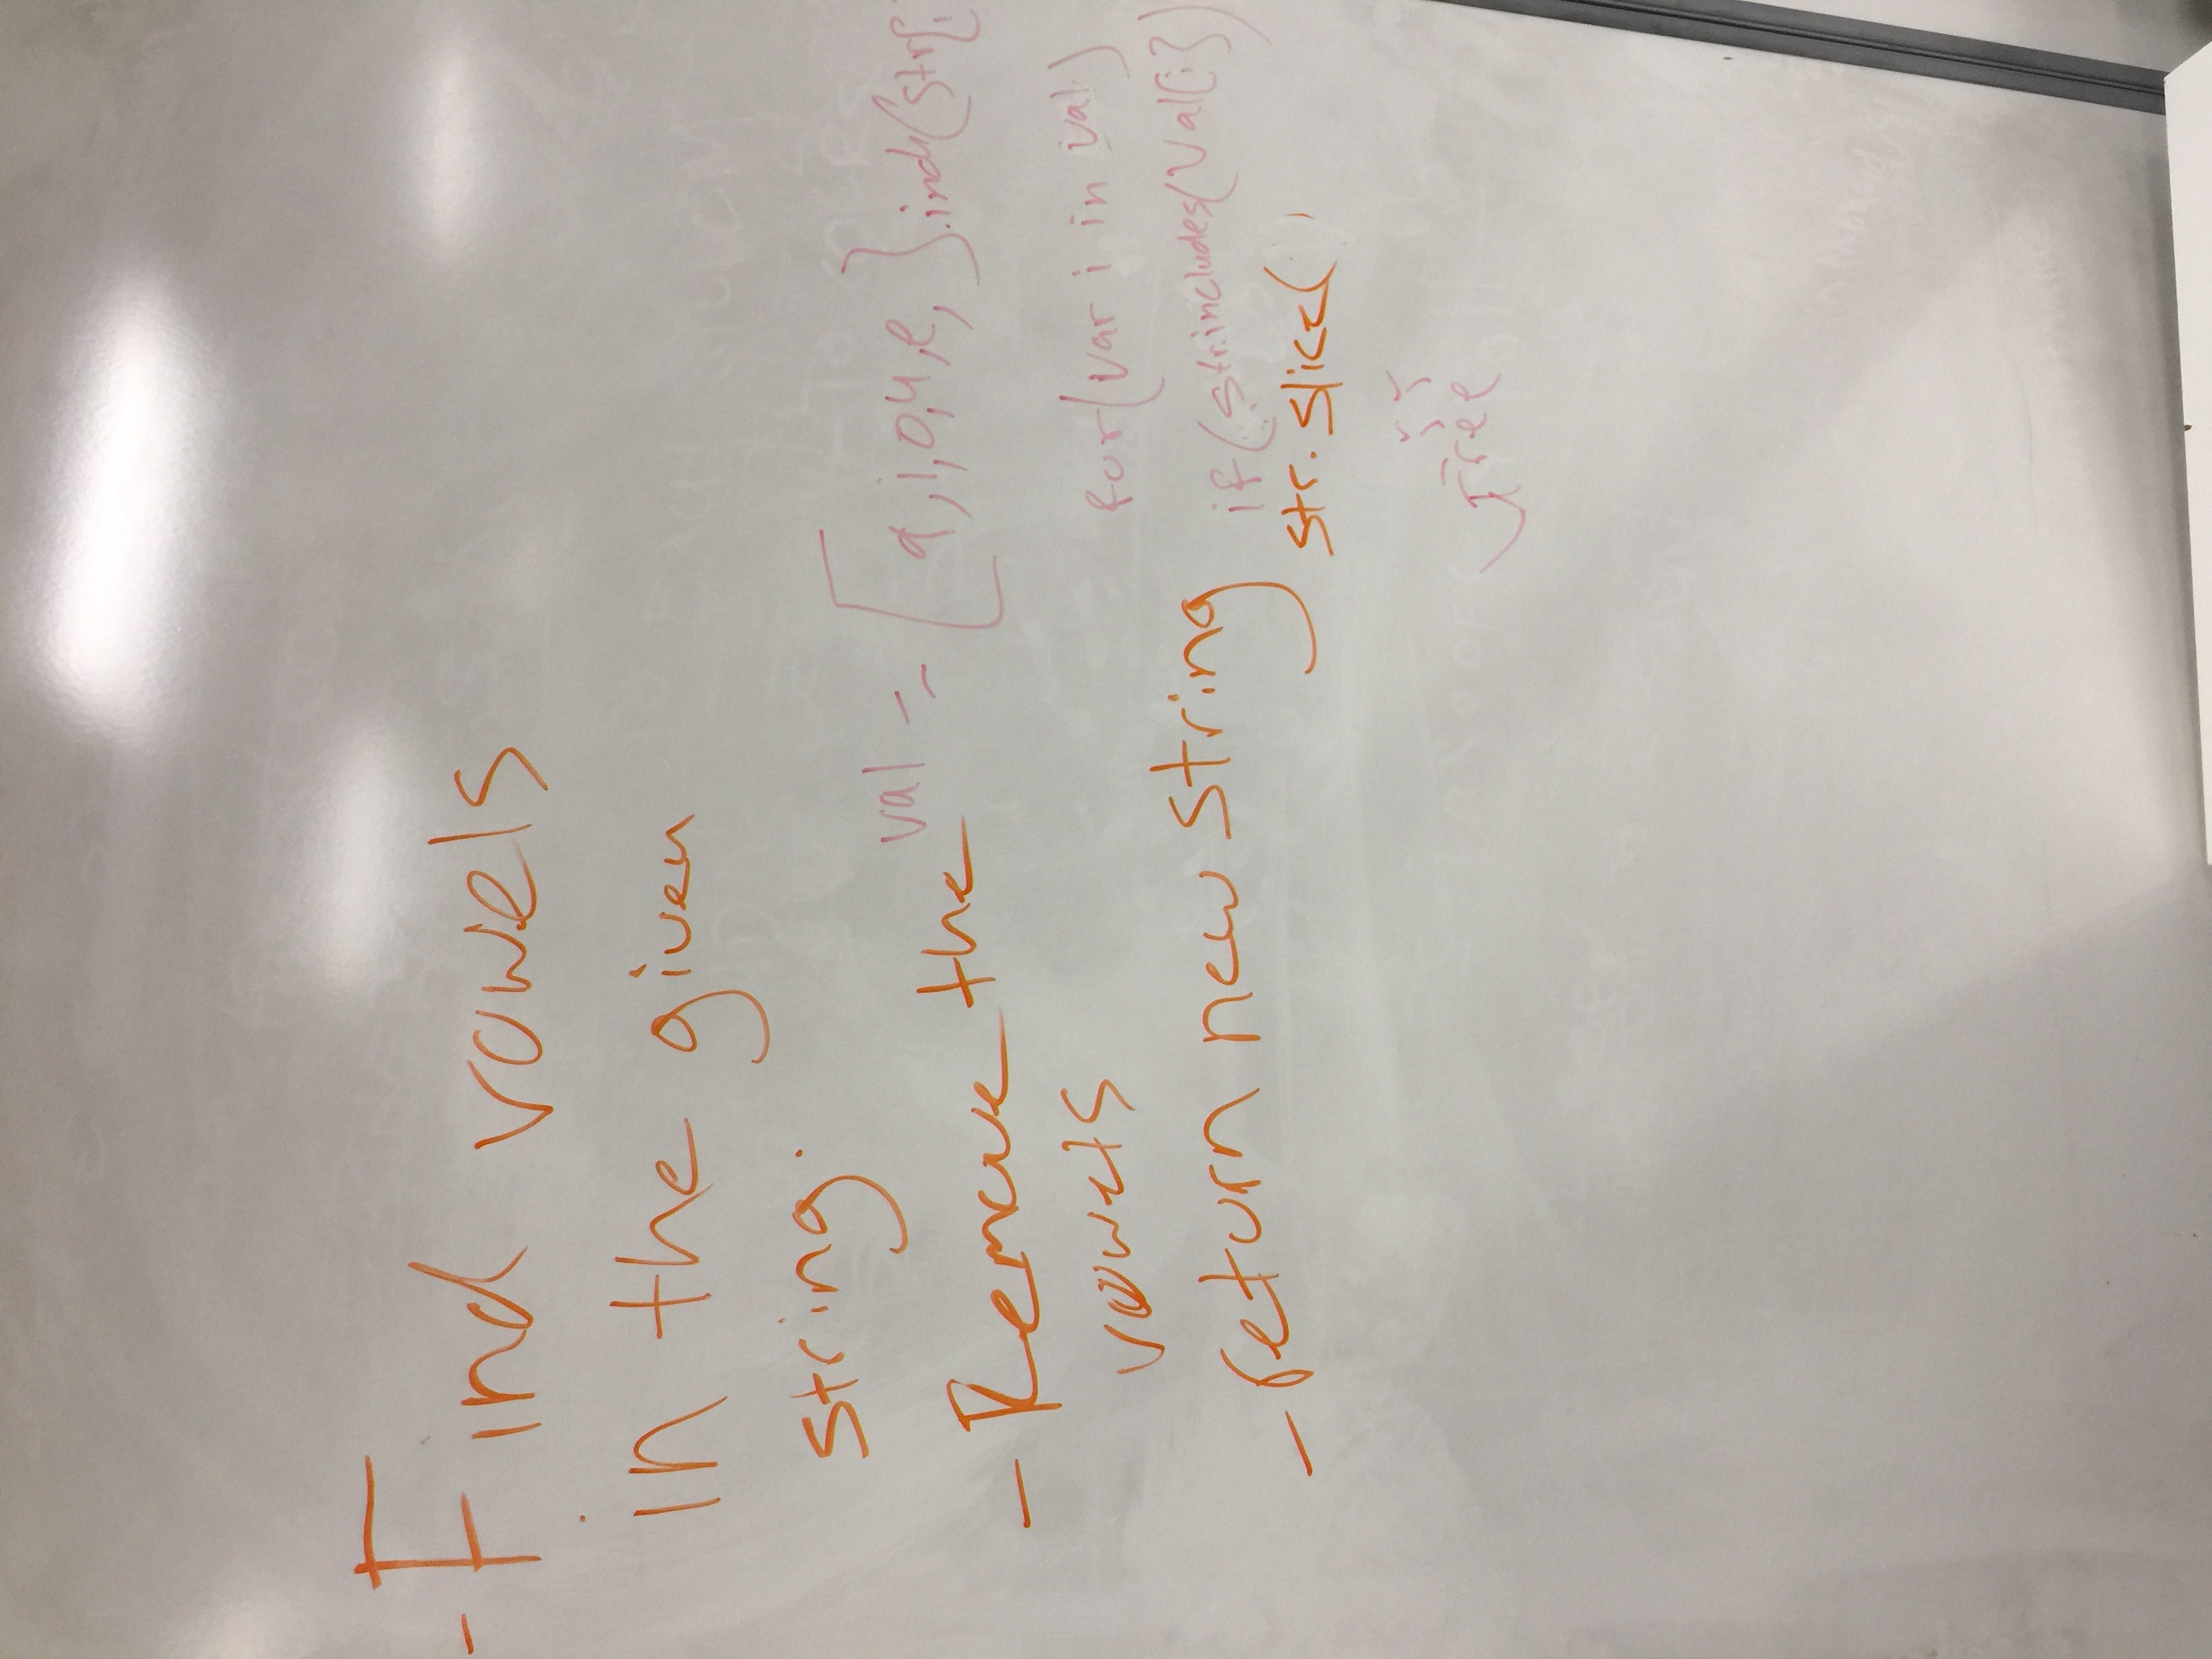 - Find vowels
in the given
string.
- Remove the
vowels
- return new string
val = [a,i,o,u,e, ].ind(str[i
for(var i in val)
if(str.includes(val[i])
str.slice( )
Free